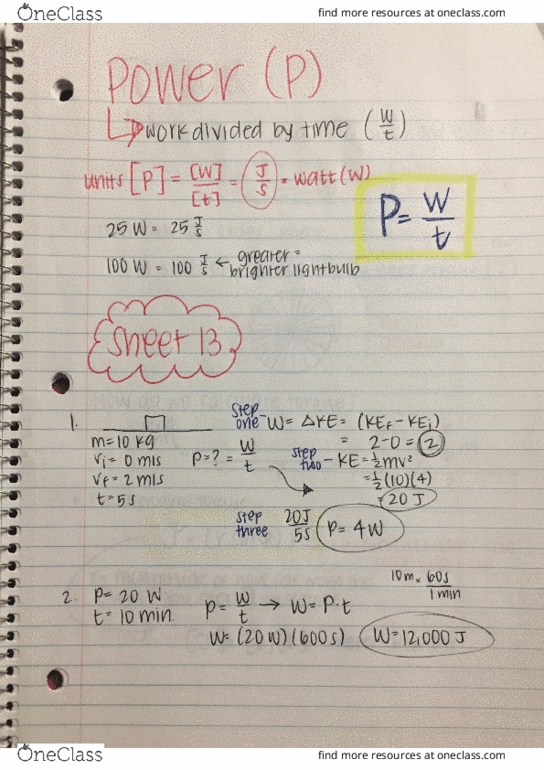 OneClass find more resources at oneclass.com
Power (P)
↳ work divided by time (W/t)
units [P] = [W]/[t] = J/s = watt (W)
P = W/t
25 W = 25 J/s
100 W = 100 J/s ← greater = brighter lightbulb
Sheet 13
1.
m = 10 kg
vi = 0 m/s
vf = 2 m/s
t = 5 s
P = ? = W/t
step one - W = ΔKE = (KEf - KEi)
= 2 - 0 = 2
step two - KE = ½mv²
= ½(10)(4)
= 20 J
step three 20J/5s P = 4W
2. P = 20 W
t = 10 min.
P = W/t → W = P·t
10m × 60s/1min
W = (20 W)(600s) W = 12,000 J
OneClass find more resources at oneclass.com